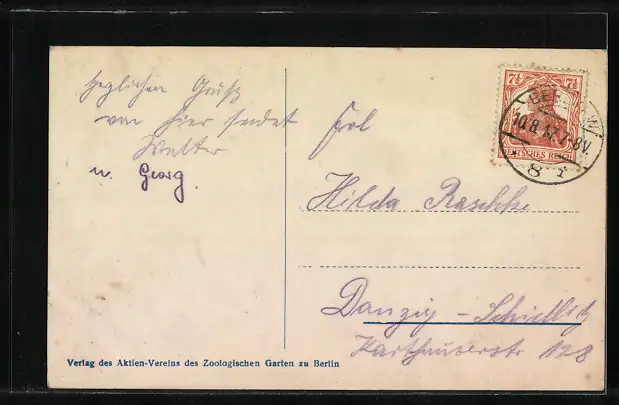 herzlichen Gruß
von hier sendet
Walter
u. Georg.
Frl
Hilda Raschke
Danzig - Schidlitz
Karthäuserstr 128
7½ 7½
DEUTSCHES REICH
BERLIN W
10.8.17. 7-8V
8
Verlag des Aktien-Vereins des Zoologischen Garten zu Berlin